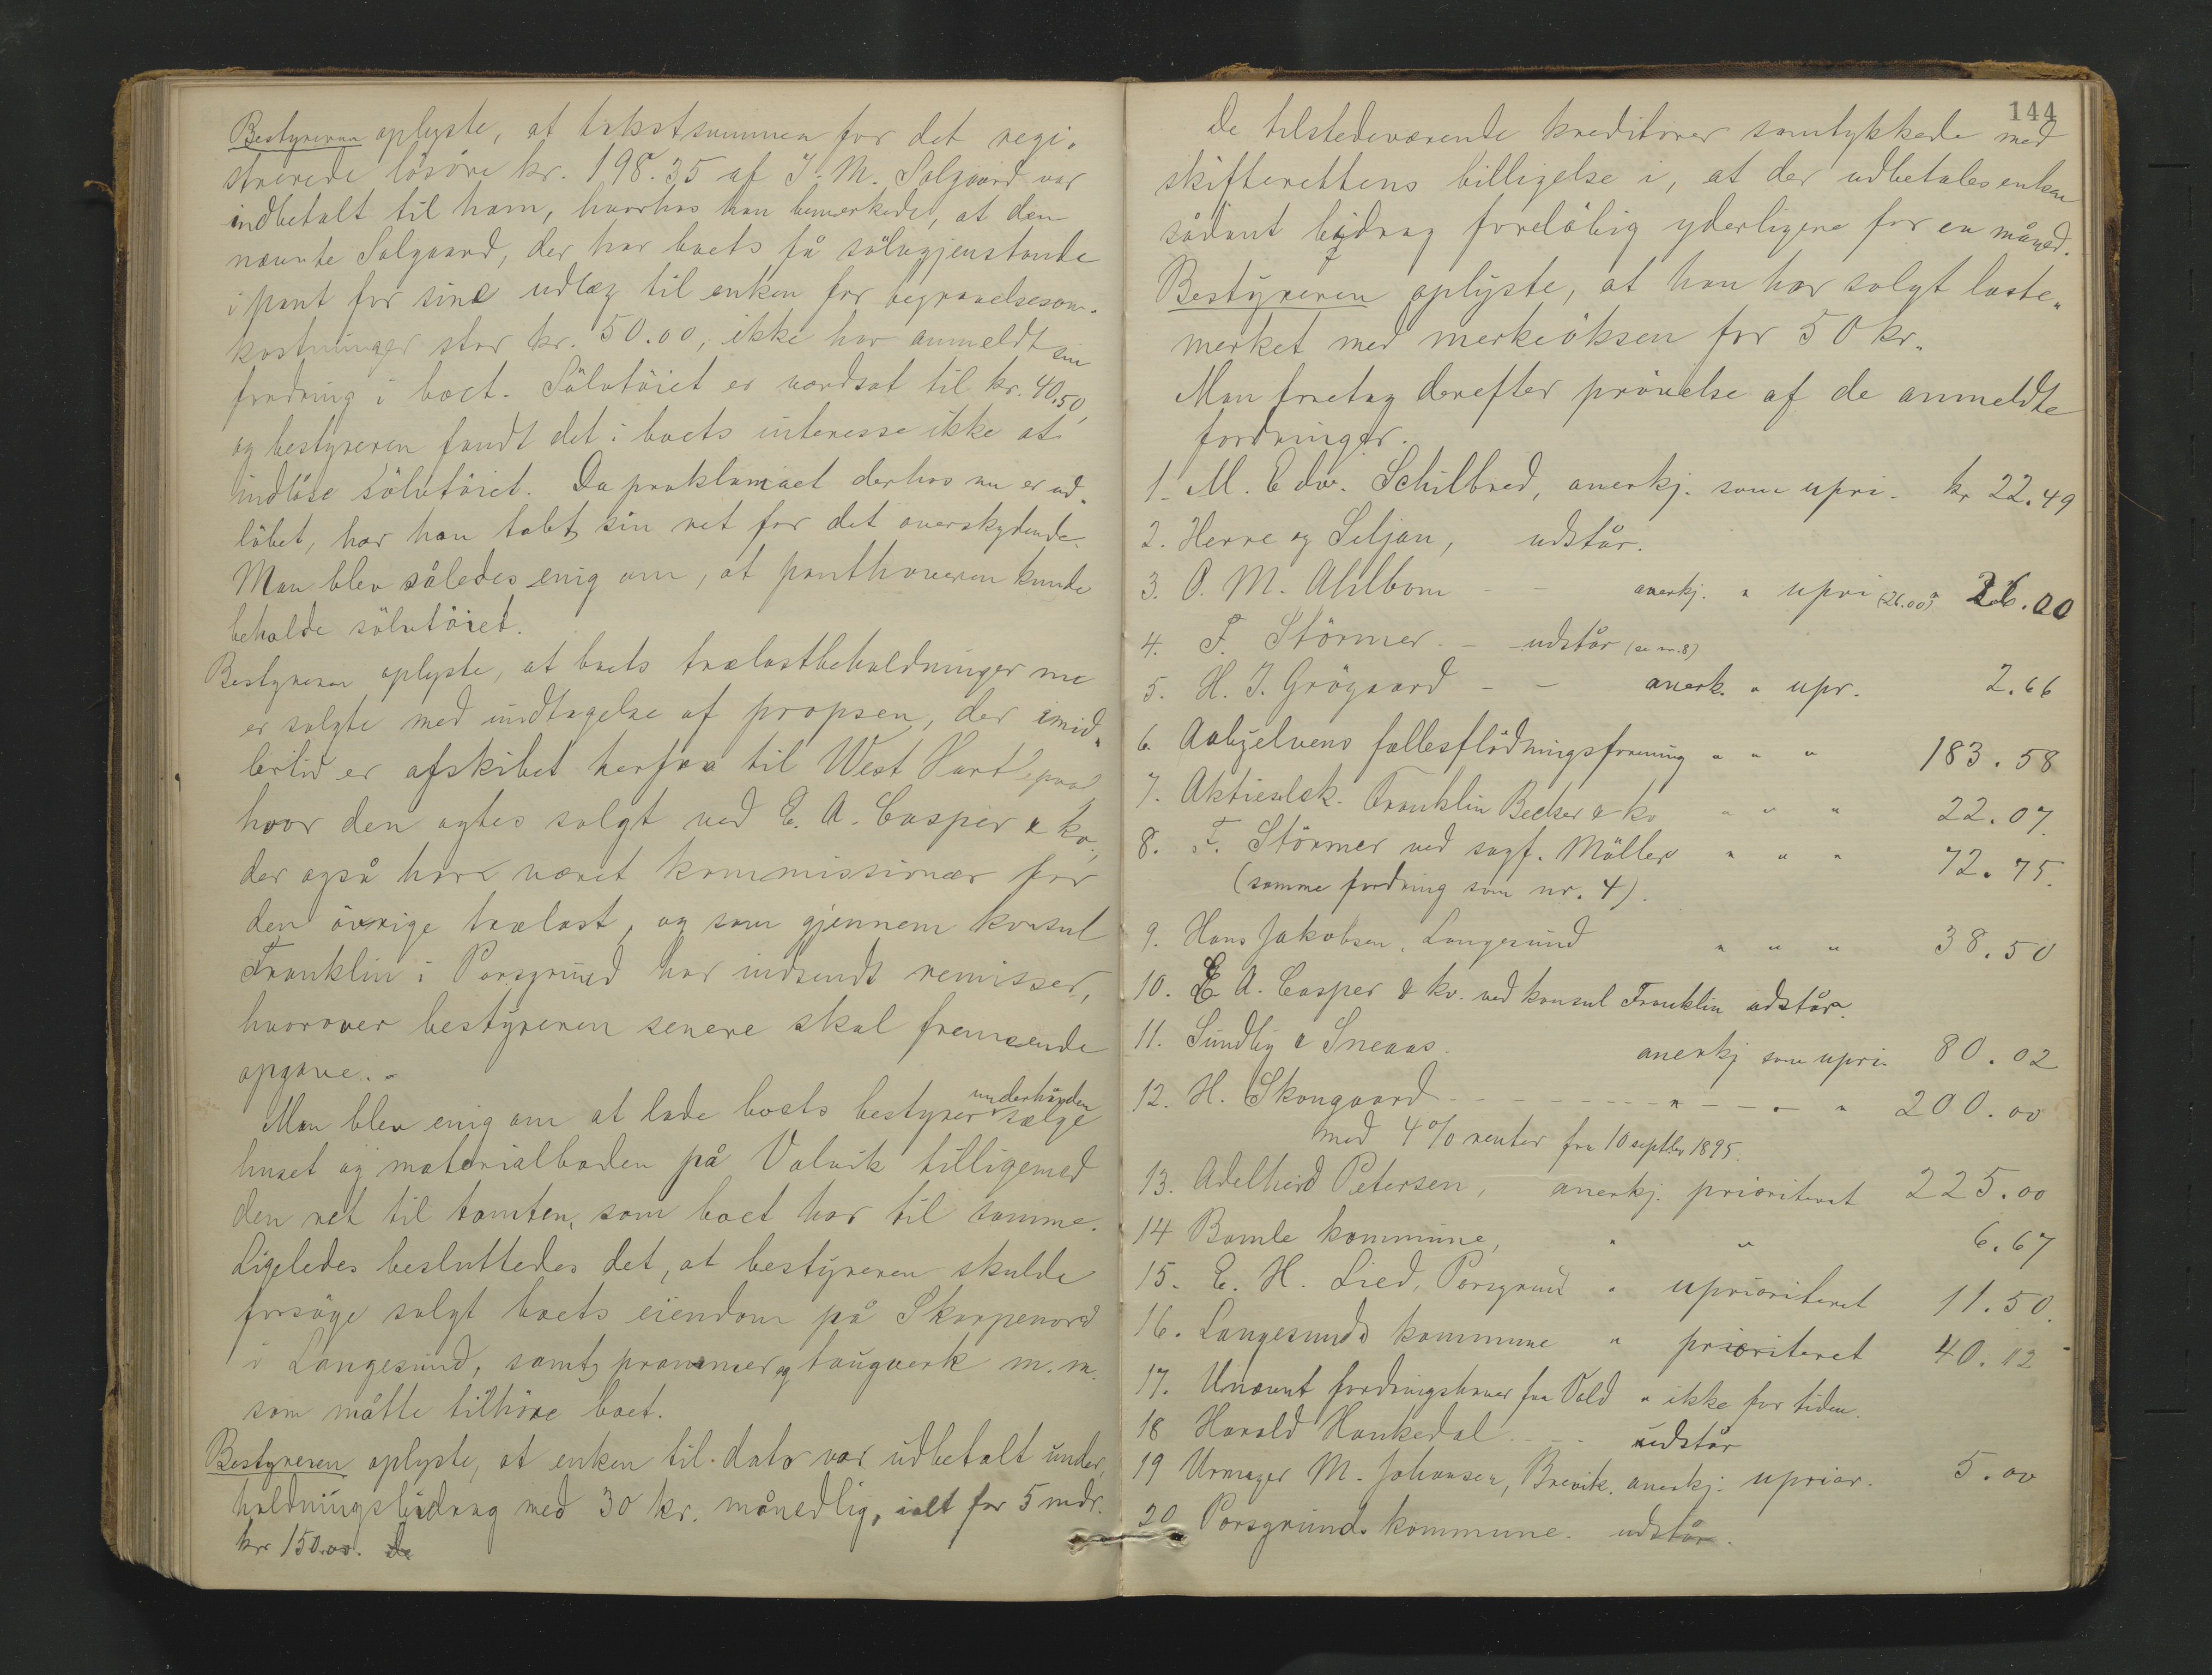 Bestyreren oplyste, at takstsummen for det regi-
strerede løsøre kr. 198.35 af J. M. Salgaard var
indbetalt til ham, hvorhos han bemerkede, at den
nævnte Salgaard, der har boets få sølvgjenstande
i pant for sine udlæg til enken for begravelsesom-
kostninger stor kr. 50.00, ikke har anmeldt sin
fordring i boet. Sölvtöiet er værdsat til kr. 40.50,
og bestyreren fandt det i boets interesse ikke at
indlöse sölvtöiet. Da proklamaet derhos nu er ud-
löbet, har han tabt sin ret for det overskydende.
Man blev således enig om, at panthaveren kunde
beholde sölvtöiet.
Bestyreren oplyste, at boets trælastbeholdninger nu
er solgte med undtagelse af propsen, der imid-
lertid er afskibet herfra til West Hartlepool,
hvor den agtes solgt ved E. A. Casper & ko.,
der også har været kommissionær for
den övrige trælast, og som gjennem konsul
Franklin i Porsgrund har indsendt remisser,
hvorover bestyreren senere skal fremsende
opgave. -
Man blev enig om at lade boets bestyrer underhånden sælge
huset og materialboden på Valvik tilligemed
den ret til tomten, som boet har til samme.
Ligeledes besluttedes det, at bestyreren skulde
forsöge solgt boets eiendom på Skarpenord
i Langesund, samt prammer og taugverk m. m.
som måtte tilhöre boet.
Bestyreren oplyste, at enken til dato var udbetalt under-
holdningsbidrag med 30 kr. månedlig, ialt for 5 mdr.
kr 150.00. De
144
De tilstedeværende kreditorer samtykkede med
skifterettens billigelse i, at der udbetales enken
sådant bidrag foreløbig yderligere for en måned.
Bestyreren oplyste, at han har solgt laste-
merket med merkeöksen for 50 kr.
Man foretog derefter prövelse af de anmeldte
fordringer.
1. M. Edv. Schilbred, anerkj. som upri. kr 22.49
2. Herre og Seljan, udstår.
3. O. M. Ahlbom - - anerkj. " upri (26.00) 26.00
4. F. Störmer. - udstår (se nr. 8)
5. H. J. Grögaard - - anerk. " upr. 2.66
6. Aabyelvens fællesflödningsforening " " " 183.58
7. Aktieselsk. Franklin Becker & ko " " " 22.07.
8. F. Störmer ved sagf. Möller " " " 72.75.
(samme fordring som nr. 4).
9. Hans Jakobsen, Langesund " " " 38.50
10. E. A. Casper & ko. ved konsul Franklin udstår.
11. Sundby & Sneaas. anerkj som upri. 80.02
12. H. Skougaard - - - " - " - " 200.00
med 4 % renter fra 10 septbr 1895.
13. Adelheid Petersen, anerkj. prioriteret 225.00
14 Bamle kommune, " " 6.67
15. E. H. Lied, Porsgrund " uprioriteret 11.50.
16. Langesunds kommune " prioriteret 40.12
17. Unævnt fordringshaver fra Vold " ikke for tiden.
18 Harald Hankedal - - - udstår
19 Urmager M. Johansen, Brevik. anerkj: uprior. 5.00
20 Porsgrunds kommune. udstår.